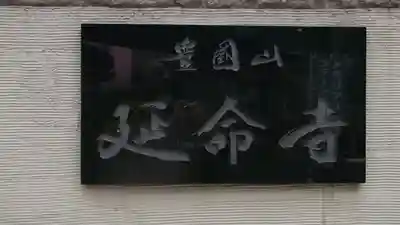 豊國山
延命寺